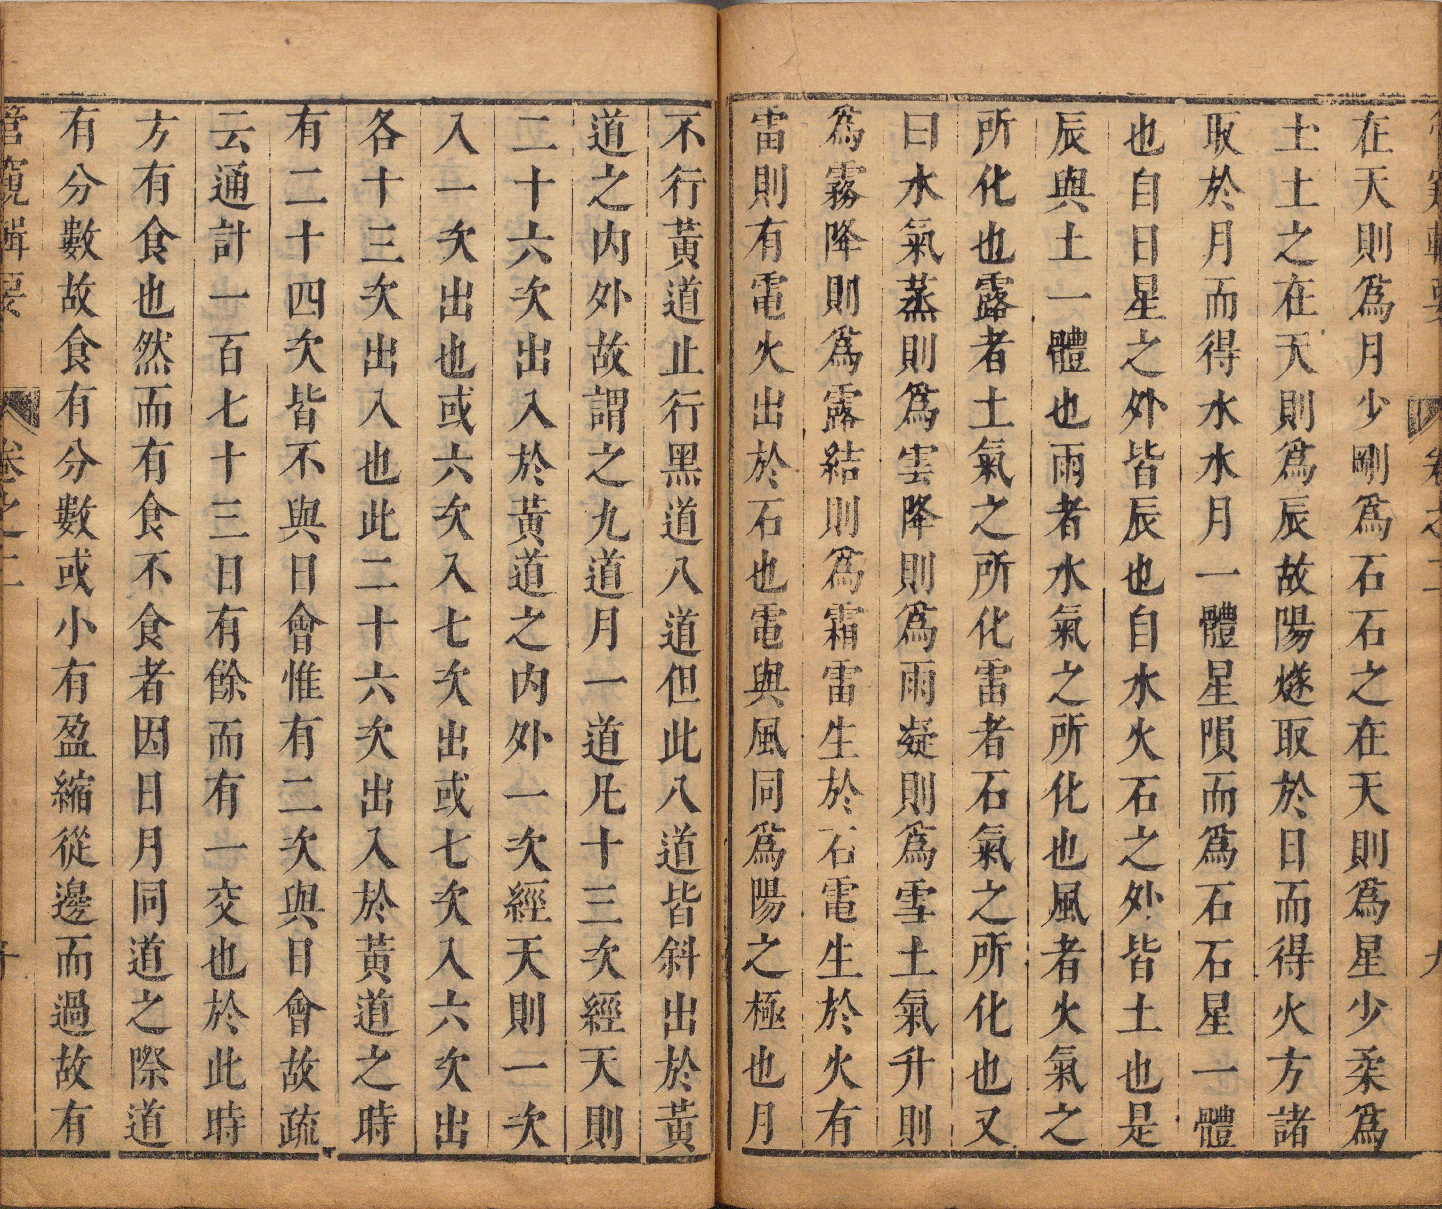 在天則爲月少剛爲石石之在天則爲星少柔爲
土土之在天則爲辰故陽燧取於日而得火方諸
取於月而得水水月一體星隕而爲石石星一體
也自日星之外皆辰也自水火石之外皆土也是
辰與土一體也雨者水氣之所化也風者火氣之
所化也露者土氣之所化雷者石氣之所化也又
曰水氣蒸則爲雲降則爲雨凝則爲雪土氣升則
爲霧降則爲露結則爲霜雷生於石電生於火有
雷則有電火出於石也電與風同爲陽之極也月
不行黃道止行黑道八道但此八道皆斜出於黃
道之內外故謂之九道月一道凡十三次經天則
二十六次出入於黃道之內外一次經天則二次
入一次出也或六次入七次出或七次入六次出
各十三次出入也此二十六次出入於黃道之時
有二十四次皆不與日會惟有二次與日會故疏
云通計一百七十三日有餘而有一交也於此時
方有食也然而有食不食者因日月同道之際道
有分數故食有分數或小有盈縮從邊而過故有
管窺輯要
卷之二